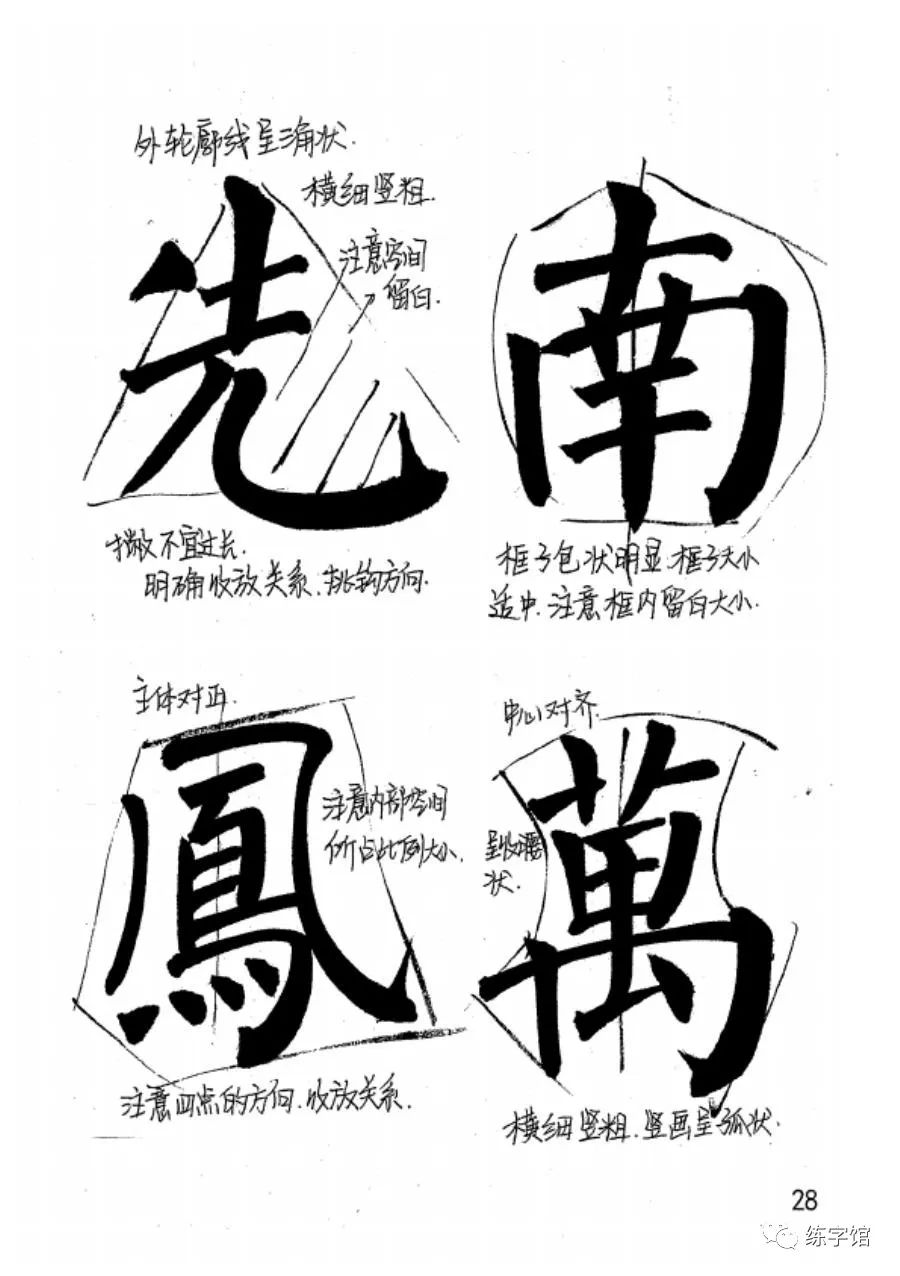 外轮廓线呈三角状.
横细竖粗.
注意空间
留白.
先
撇不宜过长.
明确收放关系、挑钩方向.
南
框子包状明显.框子大小
适中.注意框内留白大小.
主体对正.
鳳
注意内部空间
所占比例大小.
注意四点的方向.收放关系.
中心对齐.
呈收腰
状.
萬
横细竖粗.竖画呈弧状.
28
练字馆